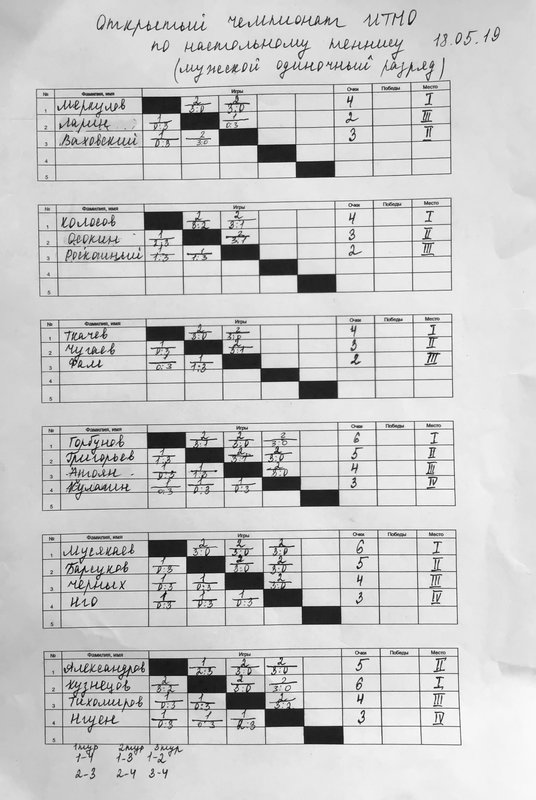 Открытый чемпионат ИТМО
по настольному теннису 18.05.19
(мужской одиночный разряд)
№ Фамилия, имя Игры Очки Победы Место
1 Меркулов 2 3:0 2 3:0 4 I
2 Ларин 1 0:3 1 0:3 2 III
3 Ваховский 1 0:3 2 3:0 3 II
4
5
№ Фамилия, имя Игры Очки Победы Место
1 Колосов 2 3:2 2 3:1 4 I
2 Осокин 1 2:3 2 3:1 3 II
3 Роскошный 1 1:3 1 1:3 2 III
4
5
№ Фамилия, имя Игры Очки Победы Место
1 Ткачев 2 3:0 2 3:0 4 I
2 Чугаев 1 0:3 2 3:1 3 II
3 1 0:3 1 1:3 2 III
4
5
№ Фамилия, имя Игры Очки Победы Место
1 Горбунов 2 3:1 2 3:0 2 3:0 6 I
2 Григорьев 1 1:3 2 3:1 2 3:0 5 II
3 1 0:3 1 1:3 2 3:0 4 III
4 Кулагин 1 0:3 1 0:3 1 0:3 3 IV
5
№ Фамилия, имя Игры Очки Победы Место
1 Мусякаев 2 3:0 2 3:0 2 3:0 6 I
2 Баргуков 1 0:3 2 3:0 2 3:0 5 II
3 Черных 1 0:3 1 0:3 2 3:0 4 III
4 Нго 1 0:3 1 0:3 1 0:3 3 IV
5
№ Фамилия, имя Игры Очки Победы Место
1 Александров 1 2:3 2 3:0 2 3:0 5 II
2 Кузнецов 2 3:2 2 3:0 2 3:0 6 I
3 Тихомиров 1 0:3 1 0:3 2 3:2 4 III
4 Нгуен 1 0:3 1 0:3 1 2:3 3 IV
5
1 тур 2 тур 3 тур
1-4 1-3 1-2
2-3 2-4 3-4